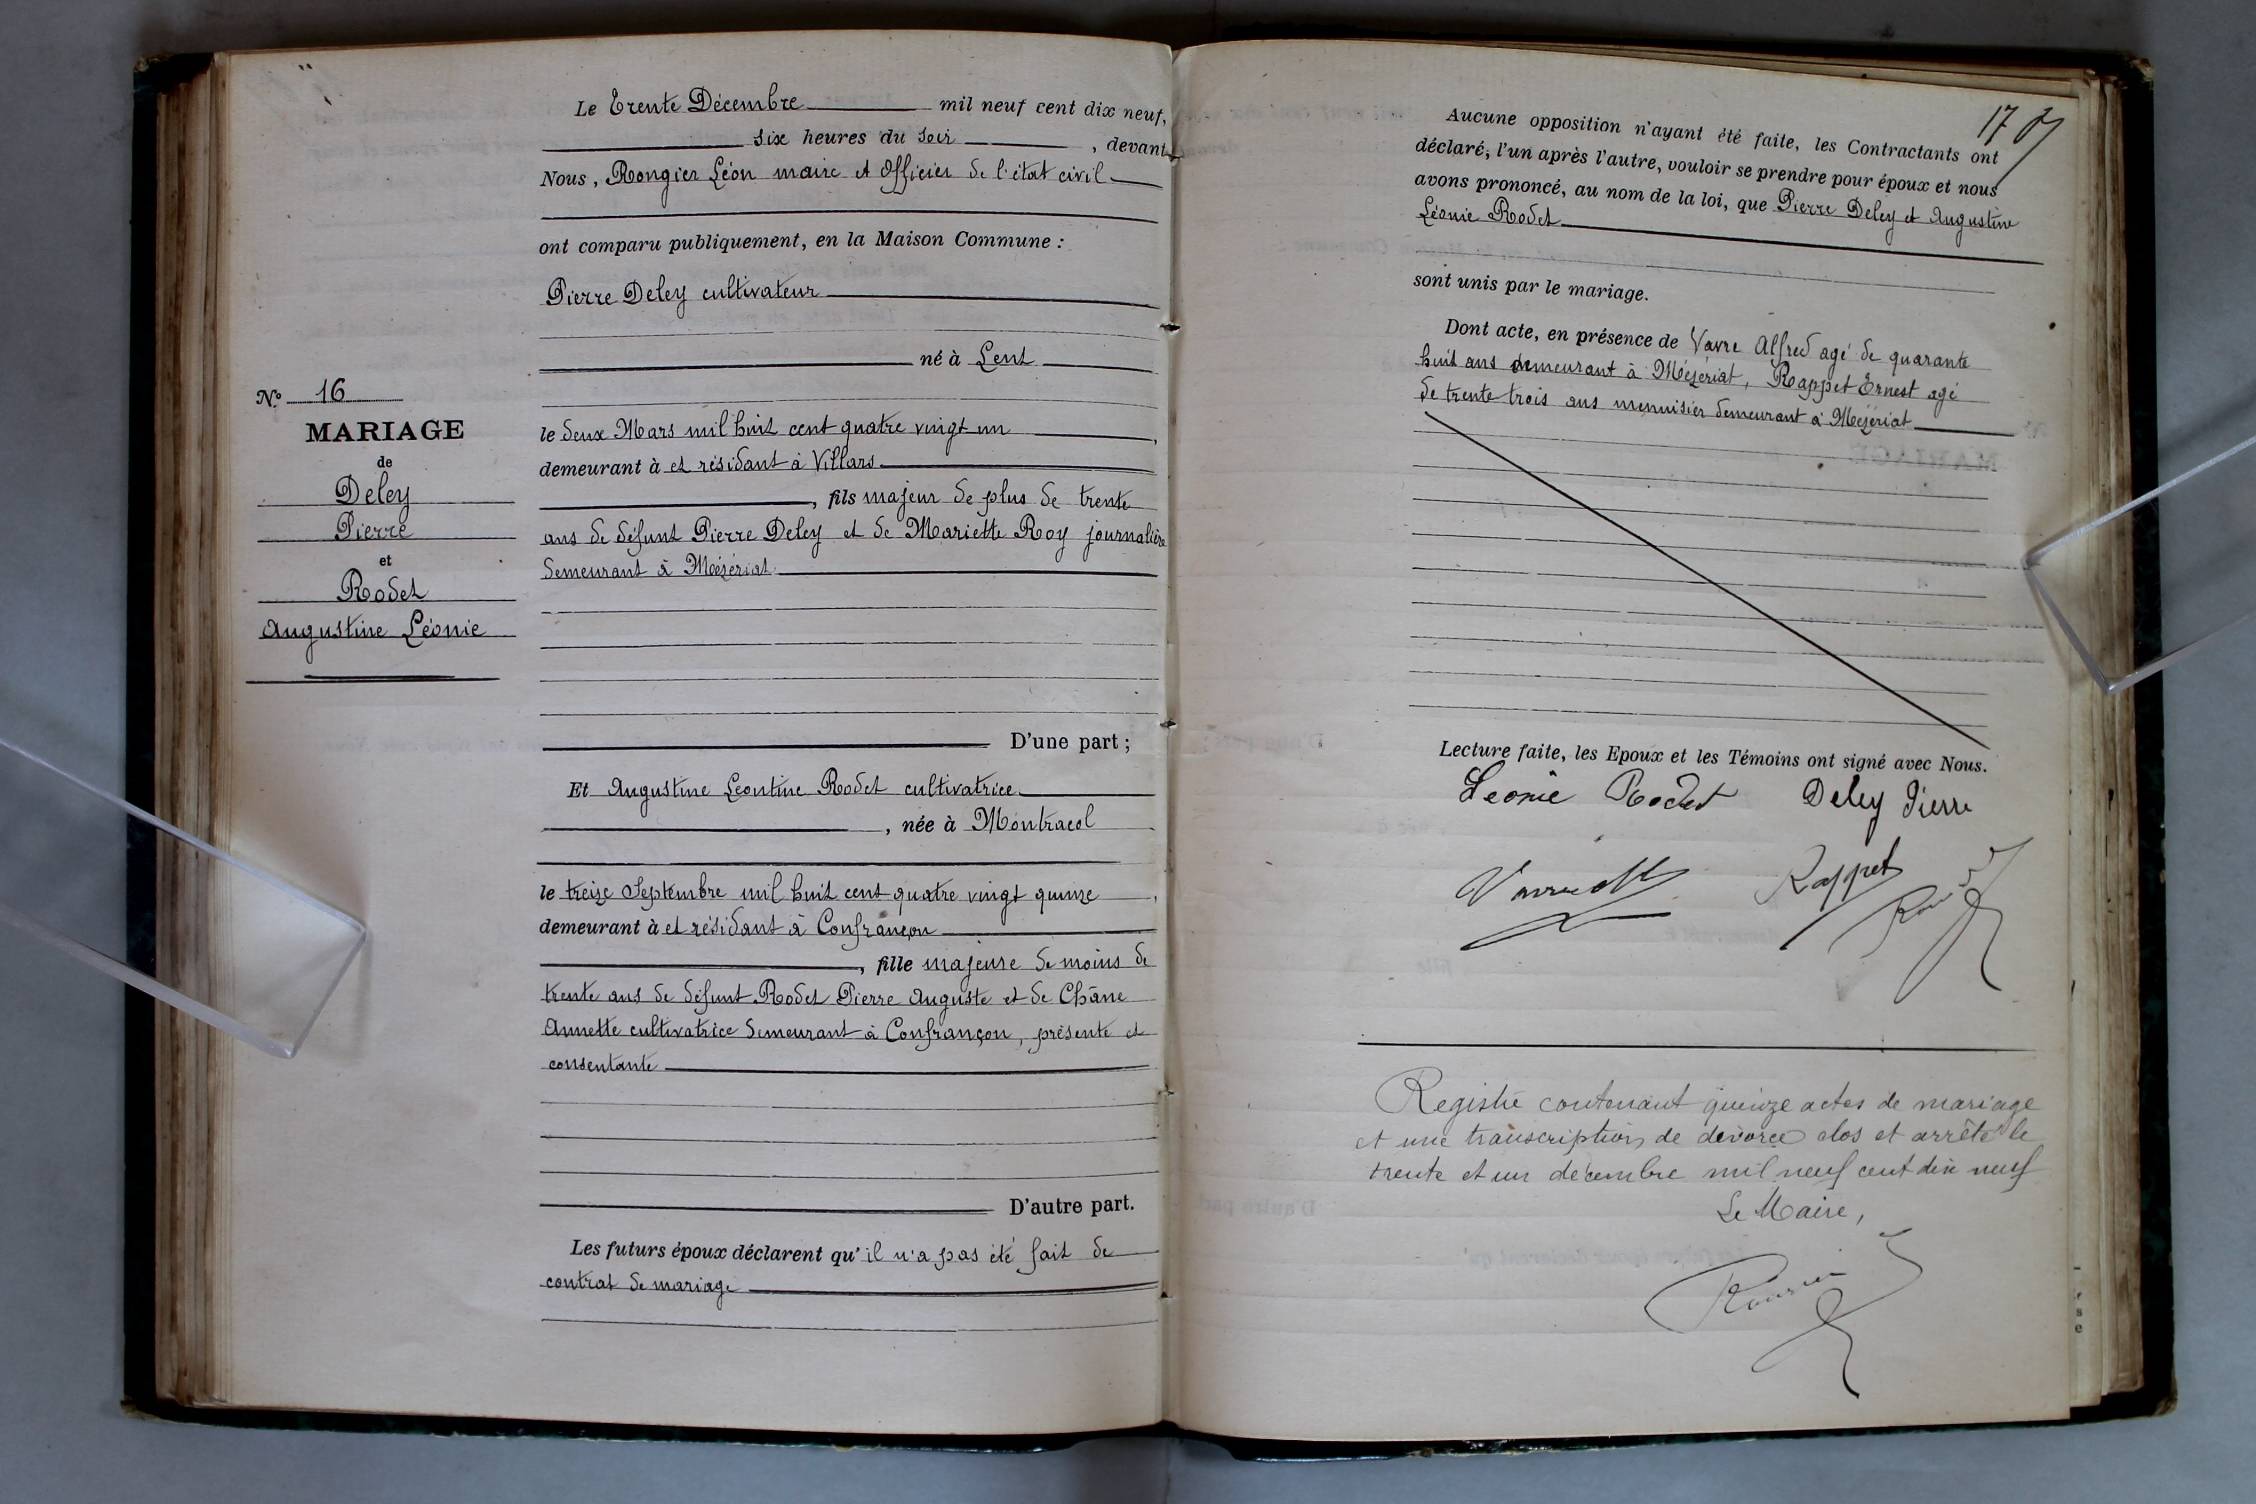 Le Trente Décembre mil neuf cent dix neuf,
six heures du soir, devant
Nous, Rongier Léon maire et Officier de l'état civil
ont comparu publiquement, en la Maison Commune :
Pierre Deley cultivateur
né à Lent
le deux Mars mil huit cent quatre vingt un,
demeurant à et résidant à Villars
, fils majeur de plus de trente
ans de défunt Pierre Deley et de Mariette Roy journalière
demeurant à Mézériat
N.º 16
MARIAGE
de
Deley
Pierre
et
Rodet
Augustine Léonie
D'une part ;
Et Augustine Léontine Rodet cultivatrice
, née à Montracol
le treize Septembre mil huit cent quatre vingt quinze,
demeurant à et résidant à Confrançon
, fille majeure de moins de
trente ans de défunt Rodet Pierre Auguste et de Châne
Annette cultivatrice demeurant à Confrançon, présente et
consentante
D'autre part.
Les futurs époux déclarent qu'il n'a pas été fait de
contrat de mariage
17
Aucune opposition n'ayant été faite, les Contractants ont
déclaré, l'un après l'autre, vouloir se prendre pour époux et nous
avons prononcé, au nom de la loi, que Pierre Deley et Augustine
Léonie Rodet
sont unis par le mariage.
Dont acte, en présence de Vavre Alfred agé de quarante
huit ans demeurant à Mézériat, Rappet Ernest agé
de trente trois ans menuisier demeurant à Mézériat
Lecture faite, les Epoux et les Témoins ont signé avec Nous.
Léonie Rodet Deley Pierre
Rappet
Registre contenant quinze actes de mariage
et une transcription de divorce clos et arrêté le
trente et un décembre mil neuf cent dix neuf
Le Maire,